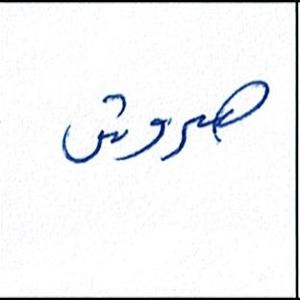 صروش